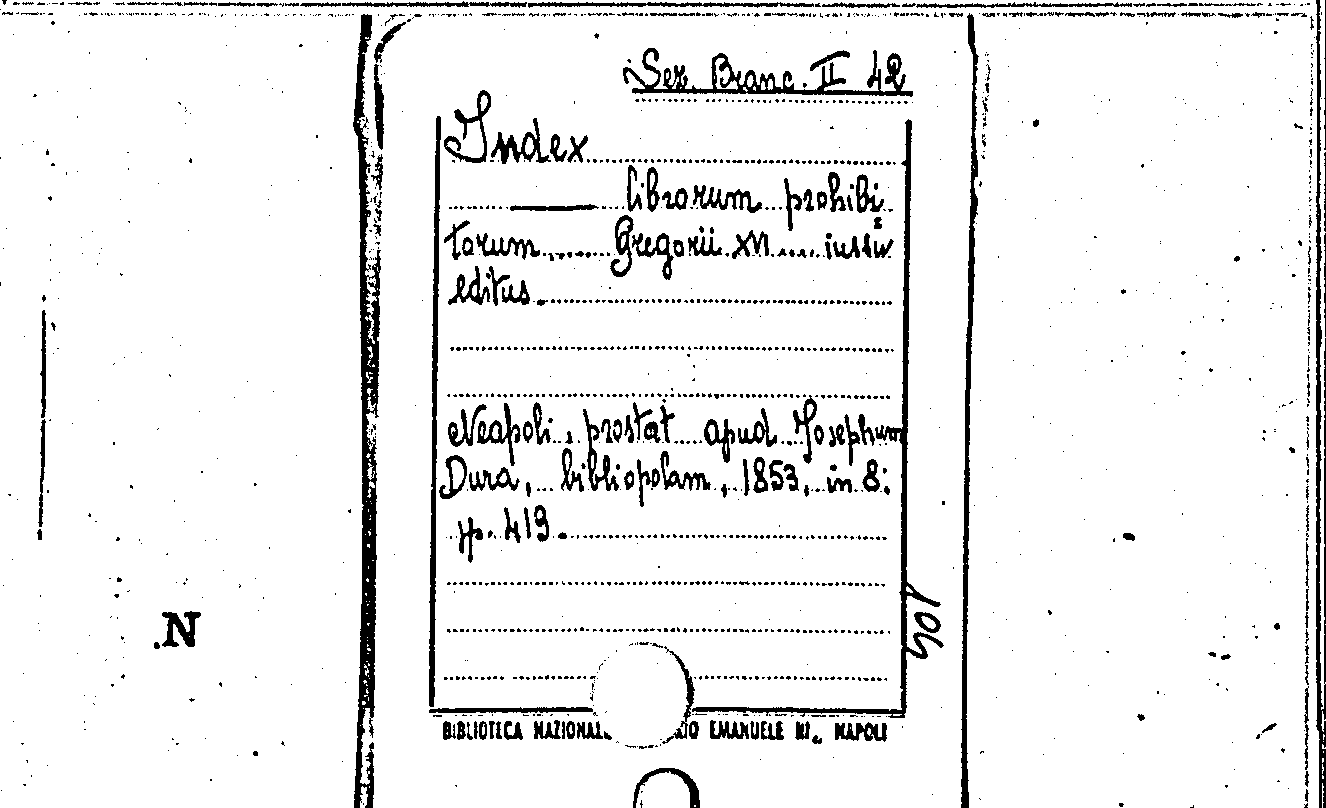 Sez. Branc. II 42
Index
——— librorum prohibi
torum...... Gregorii XVI .... iussu
editus.
Neapoli, prostat apud Josephum
Dura, bibliopolam, 1853, in 8:
pp. 419.
.N
BIBLIOTECA NAZIONAL IO EMANUELE III., NAPOLI